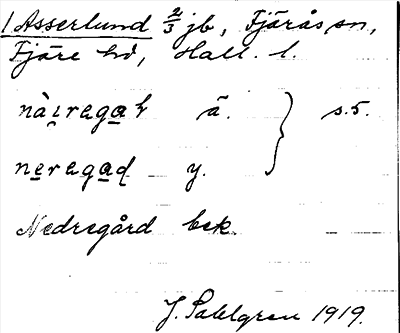 1 Asserlund 2/3 jb, Fjärås sn,
Fjäre hd, Hall. l.
ä. s. 5.
neregad y.
Nedregård bek.
J. Sahlgren 1919.